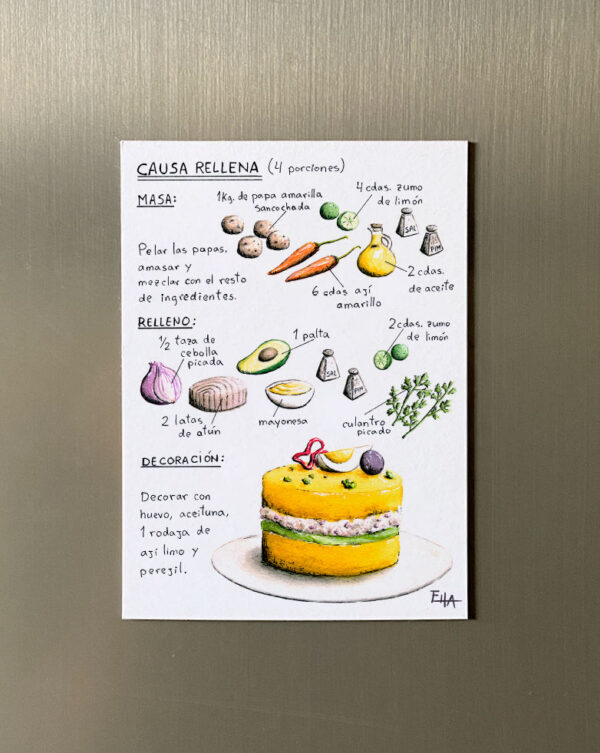 CAUSA RELLENA (4 porciones)
MASA:
1Kg. de papa amarilla
sancochada
4 cdas. zumo
de limón
SAL
PIM
Pelar las papas,
amasar y
mezclar con el resto
de ingredientes.
6 cdas ají
amarillo
2 cdas.
de aceite
RELLENO:
1/2 taza de
cebolla
picada
1 palta
2 cdas. zumo
de limón
SAL
PIM
2 latas
de atún
mayonesa
culantro
picado
DECORACIÓN:
Decorar con
huevo, aceituna,
1 rodaja de
ají limo y
perejil.
EHA